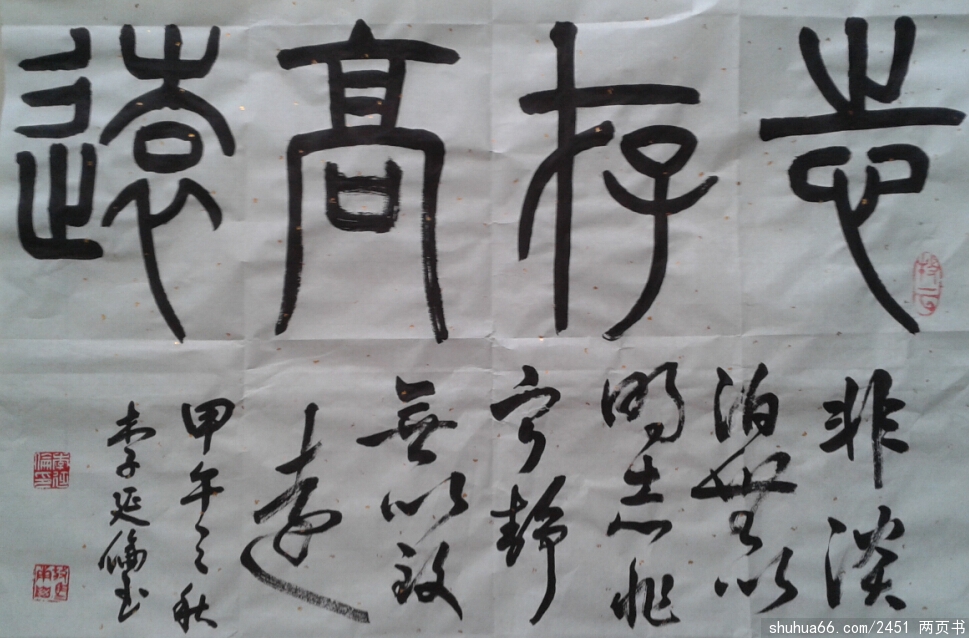 志存高遠
非淡
泊無以
明志非
寧靜
無以致
遠
甲午之秋
李延
shuhua66.com/2451 两页书